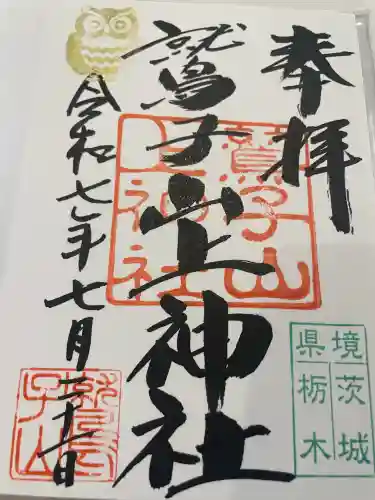 奉拝
鷲子山上神社
令和七年七月二十一日
鷲子山
上神社
境茨城
県栃木
鷲
子山